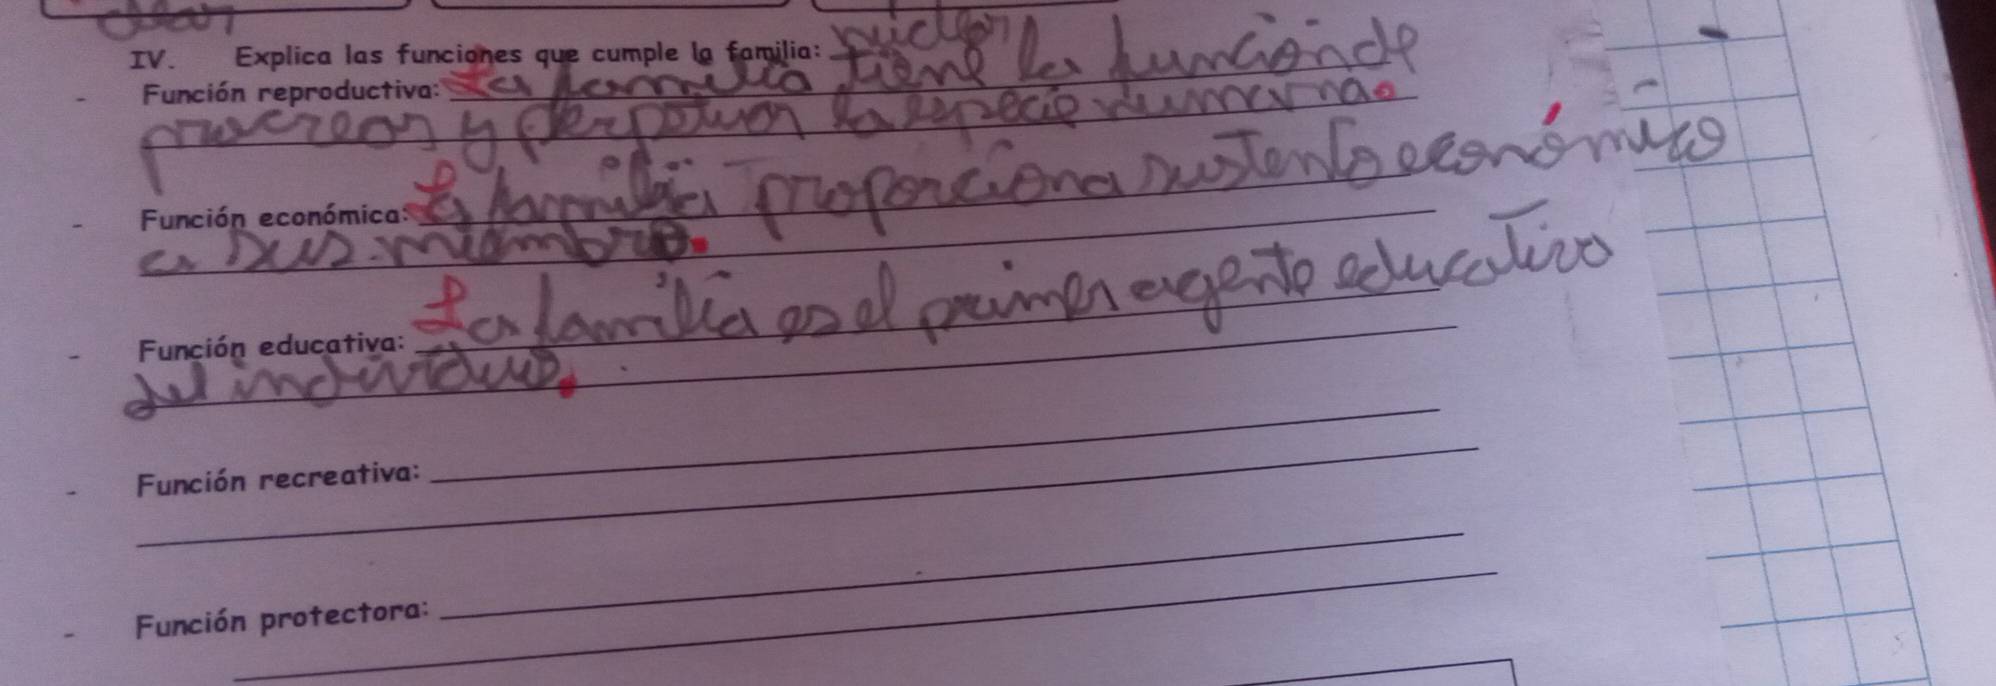 IV. Explica las funciones que cumple la familia:
Función reproductiva: La familia tiene la función de
procrear y perpetuar la especie humana.
- Función económica: La familia proporciona sustento económico
a sus miembro.
- Función educativa: La familia es el primer agente educativo
del individuo.
- Función recreativa:
- Función protectora: